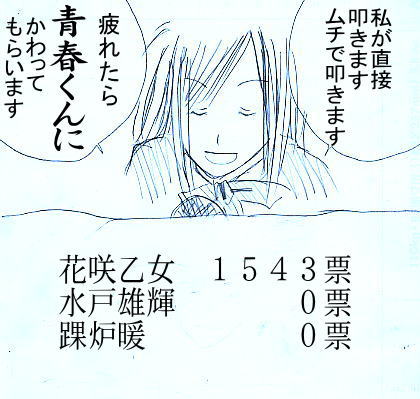 私が直接
叩きます
ムチで叩きます
疲れたら
青春くんに
かわって
もらいます
花咲乙女 1543票
水戸雄輝 0票
踝炉暖 0票